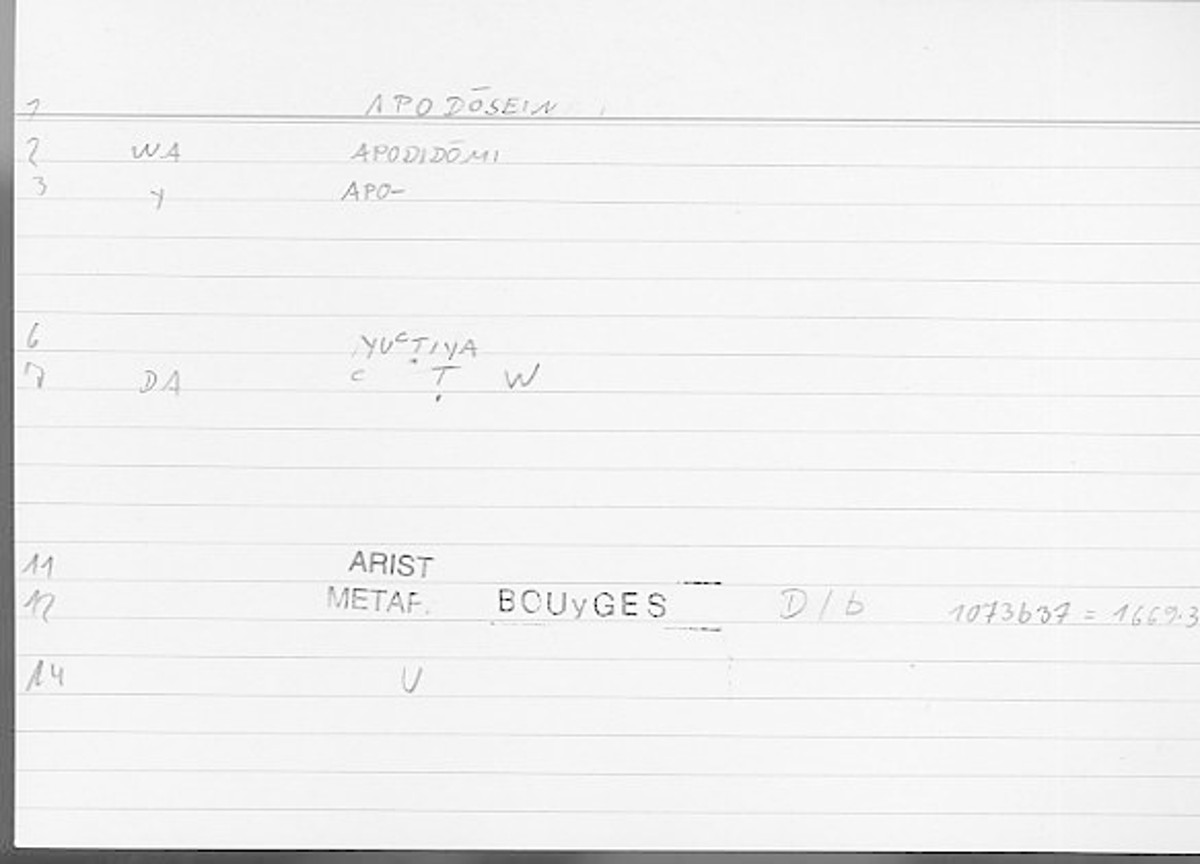 1 APODŌSEIN
2 WA APODIDŌMI
3 Y APO-
6 YUᶜṬIYA
7 DA ᶜ Ṭ W
11 ARIST
12 METAF. BOUyGES D/b 1073b37 = 1669.3
14 U